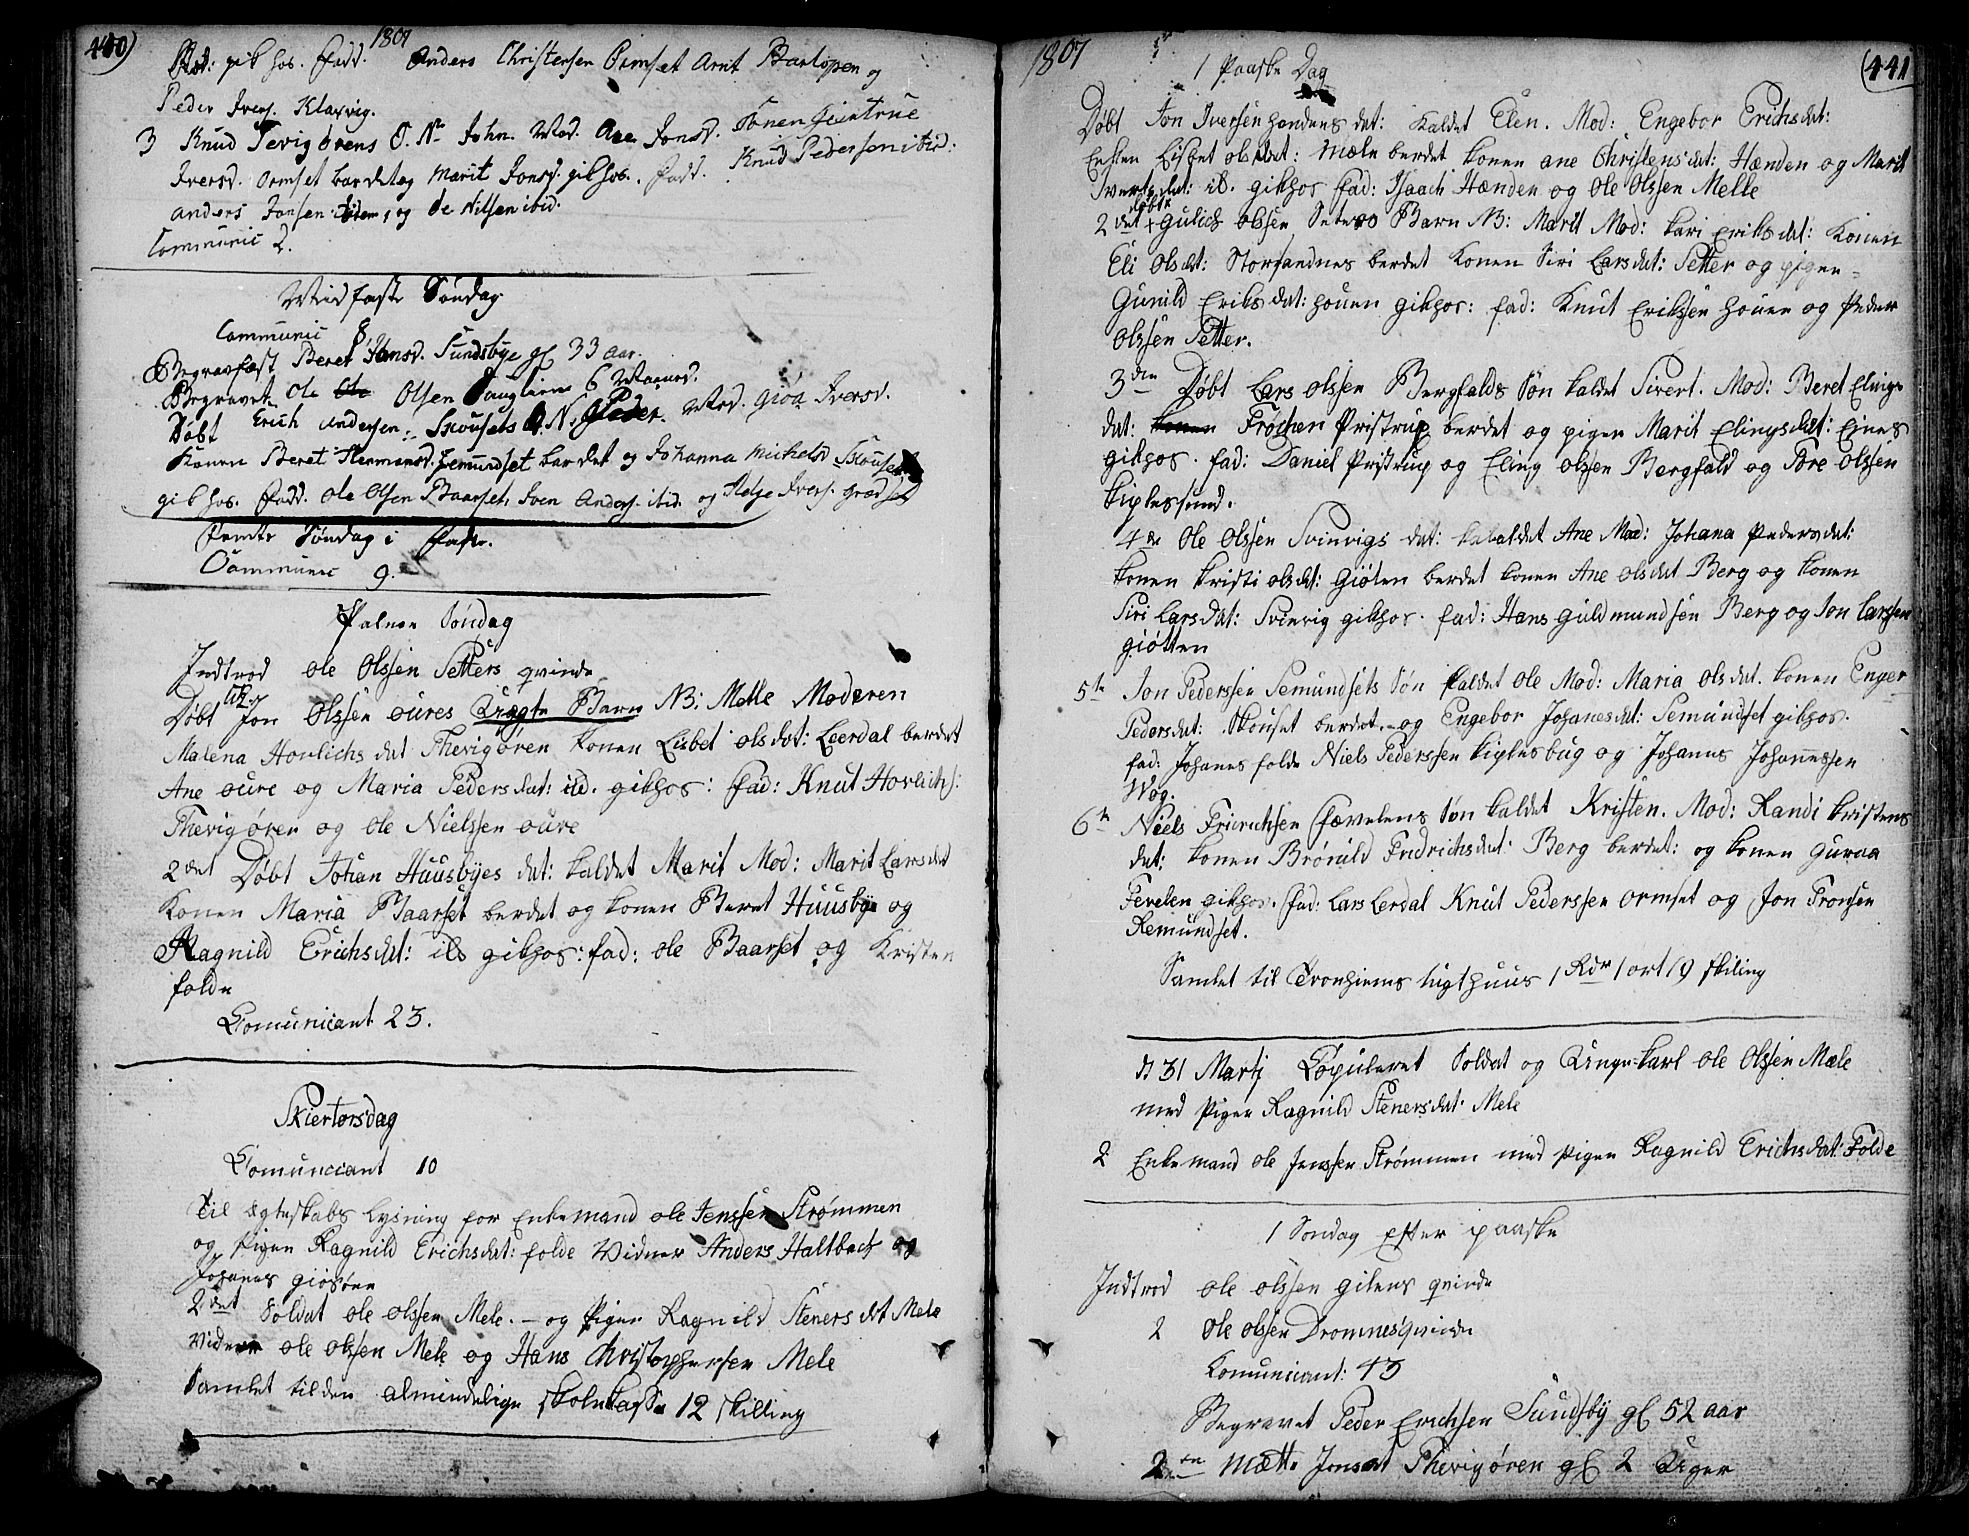 440)
1807
gik hos. Fadd. Anders Christensen Ormset Arnt Barlopen og
Peder Ivers. Klaxvig.
3 Knud Tevigørens S. N. John. Mod. Ane Jonsd. Konen Giertrue
Iversd. Ormset bar det og Marit Jonsd. gik hos. Fadd. Knud Pedersen ibid:
Anders Jonsen idem, og Ole Nilsen ibid.
Communic 2.
Midfaste Søndag
Communic 8.
Begravfæst Beret Hansd. Sundsbye gl 33 aar.
Begravet Ole Olsen 6 Maaned.
Døbt Erich Andersen Skousets S. N. Peder. Mod. Giøa Iversd.
Konen Beret Hermansd. Semundset bar det og Johanna Michelsd Skouset
gik hos. Fadd. Ole Olsen Baarset, Iven Anders. ibid. og Helge Ivers. Grødset
Femte Søndag i Faste.
Communic 9.
Palme Søndag
Indtrod Ole Olssen Setters qvinde
Døbt Jon Olssen Oures Uægte Barn NB: Mette Moderen
Malena Hovlichs dat Thevigøren konen Lisbet Olsdat: Leerdal berdet
Ane Oure og Maria Pedersdat: ild. gikhos: fad: Knut Hovlichs:
Thevigøren og Ole Nielssen Oure
2det Døbt Johan Huusbyes dat: kaldet Marit Mod: Marit Larsdat
Konen Maria Baarset berdet og konen Beret Huusbye og
Ragnild Erichsdat: ib gikhos: fad: Ole Baarset og Kristen
folde
Comunicant 23.
Skiertorsdag
Comunicant 10
Til Egteskabs Lysning for Enkemand Ole Jenssen Strømmen
og Pigen Ragnild Erichsdat: folde Vidner Anders Haltbach og
Johanes Giøsøen
2det Soldat Ole Olssen Mele. - og Pigen Ragnild Stenersdt Mele
Vidner Ole Olssen Mele og Hans Christophersen Mele
Samlet til den almindelige skolekasse 12 skilling
1807
(441
1 Paaske Dag
Døbt Jon Iversen Hændens dat: Kaldet Elen. Mod: Engebor Erichsdat:
Enken Lisbet Olsdat: Mæle berdet konen Ane Christensdat: Hænden og Marit
Ivertsdat: ib. gikhos fad: Isaach Hænden og Ole Olssen Melle
2det døbt Gulich Olssen Seters Barn NB: Marit Mod: kari Eriksdat: Konen
Eli Olsdt: Storsandnes berdet Konen Siri Larsdat: Setter og pigen
Gunild Eriksdat: Houen gikhos: fad: Knut Erikssen Houen og Peder
Olssen Setter.
3den Døbt Lars Olssen Bergfalds Søn kaldet Sivert. Mod: Beret Elings
dat: Frøchen Pristrup berdet og pigen Marit Elingsdat: Eines
gikhos. fad: Daniel Pristrup og Eling Olssen Bergfald og Tore Olssen
kiplessund.
4de Ole Olssen Svinvigs dat: kaldet Ane Mod: Johana Pedersdat:
konen Kristi Olsdt: Giøten berdet konen Ane Olsdat Berg og konen
Siri Larsdat: Svinvig gikhos. fad: Hans Guldmundsen Berg og Jon Larssen
Giøtten
5te Jon Pederssen Semundsets Søn kaldet Ole Mod: Maria Olsdat. konen Enger
Pedersdat: Skouset berdet og Engebor Johanesdat: Semundset gikhos.
fad: Johanes folde Niels Pederssen kiplesbug og Johannes Johannessen
Wog.
6te Niels Fridrichsen Fævelens Søn kaldet Kristen. Mod: Randi kristens
dat: konen Brønild Fridrichsdat: Berg berdet: og konen Guraa
Fevelen gikhos. fad: Lars Lerdal Knut Pederssen Ormset og Jon Tronsen
Remundset.
Samlet til Tronhiems tugthuus 1 Rdr 1 ort 19 skiling
d 31 Martj Copuleret Soldat og Unge-karl Ole Olssen Mæle
med Pigen Ragnild Stenersdat: Mele
2 Enkemand Ole Jenssen Strømmen med Pigen Ragnild Erichsdat: Folde
1 Søndag Efter paaske
Indtrod Ole Olssen Gilens qvinde
2 Ole Olssen Dromnes qvinde
Komuniciant: 43
Begravet Peder Erichsen Sundsby gl 52 aar
2en Mætte Jonsdat Thevigøren gl 2 Uger